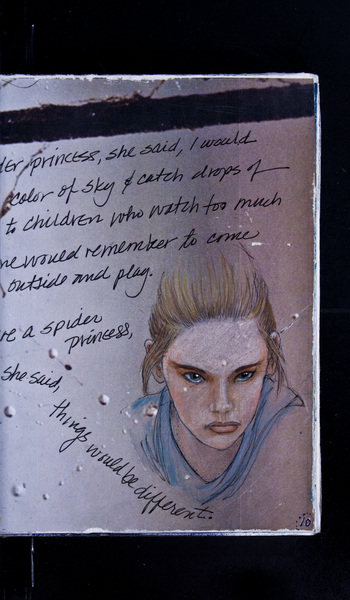 der princess, she said, I would
color of sky & catch drops of
to children who watch too much
me would remember to come
outside and play.
re a spider
princess,
she said,
things would be different.
10